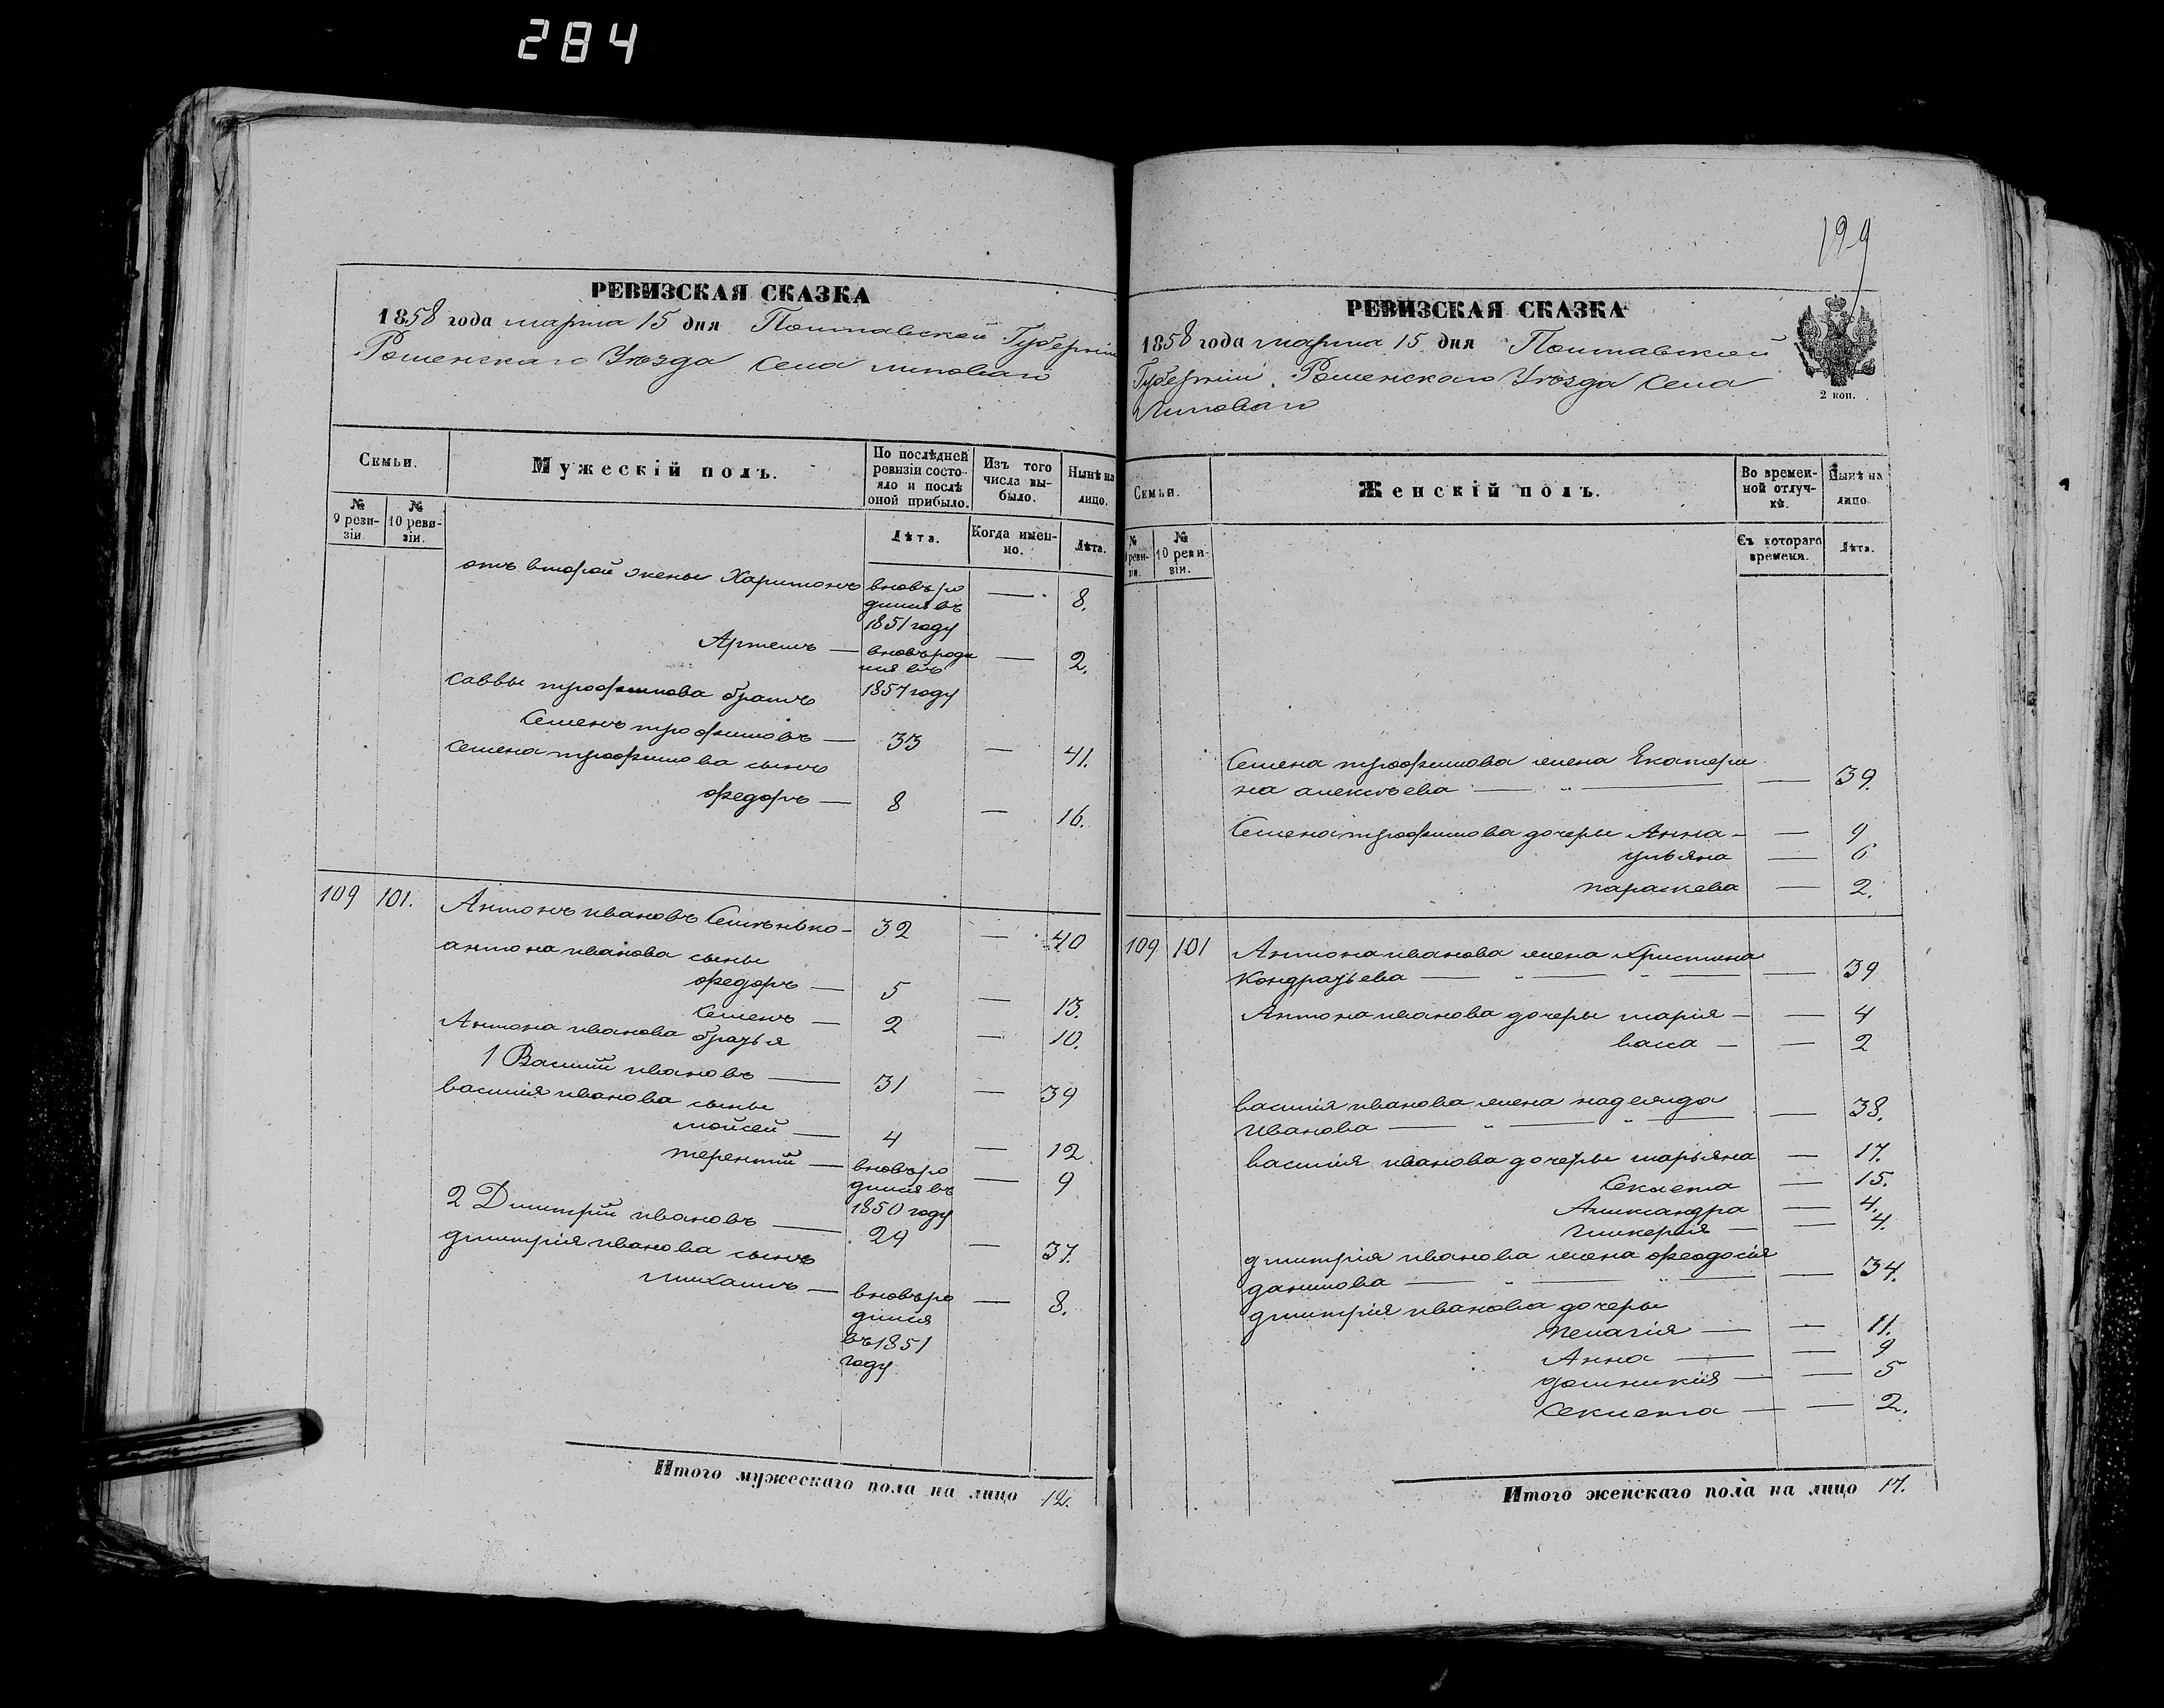 284
199
РЕВИЗСКАЯ СКАЗКА
1858 года марта 15 дня Полтавской Губерніи
Роменскаго Уѣзда Села Липоваго
Семьи.
Мужескій полъ.
По послѣдней ревизіи состояло и послѣ оной прибыло.
Изъ того числа выбыло.
Нынѣ на лицо.
№ 9 ревизіи.
№ 10 ревизіи.
Лѣта.
Когда именно.
Лѣта.
отъ второй жены Харитонъ вновь ро — 8.
дился въ
1851 году
Артемъ — вновь роди — 2.
лся въ
1857 году
Саввы трофимова братъ
Семенъ трофимовъ — 33 — 41.
Семена трофимова сынъ
Федоръ — 8 — 16.
109 101. Антонъ ивановъ Семѣнько — 32 — 40
антона иванова сыны
Федоръ — 5 — 13.
Семенъ — 2 — 10.
Антона иванова братья
1 Василій ивановъ — 31 — 39
василія иванова сыны
мойсей — 4 — 12
терентій — вновь ро — 9
дился въ
1850 году
2 Дмитрій ивановъ — 29 — 37.
дмитрія иванова сынъ
михаилъ — вновь ро — 8.
дился
въ 1851
году
Итого мужескаго пола на лицо 12.
РЕВИЗСКАЯ СКАЗКА
1858 года марта 15 дня Полтавской
Губерніи Роменскаго Уѣзда Села
Липоваго
2 коп.
Семьи.
Женскій полъ.
Во временной отлучкѣ.
Нынѣ на лицо.
№ 9 ревизіи.
№ 10 ревизіи.
Съ котораго времени.
Лѣта.
Семена трофимова жена Екатери
на алексѣева — " — — 39.
Семена трофимова дочеры Анна — — 9
ульяна — 6
параскева — 2.
109 101 Антона иванова жена Христина
Кондратьева — " — " — — 39
Антона иванова дочеры марія — — 4
васса — — 2
василія иванова жена надежда
Иванова — " — " — — 38.
василія иванова дочеры марьяна — 17.
Секлета — 15.
Александра — 4.
гликерія — — 4.
дмитрія иванова жена Феодосія
данилова — " — " — — 34.
дмитрія иванова дочеры
пелагія — — 11.
Анна — — 9
домникія — — 5
Секлета — — 2.
Итого женскаго пола на лицо 17.